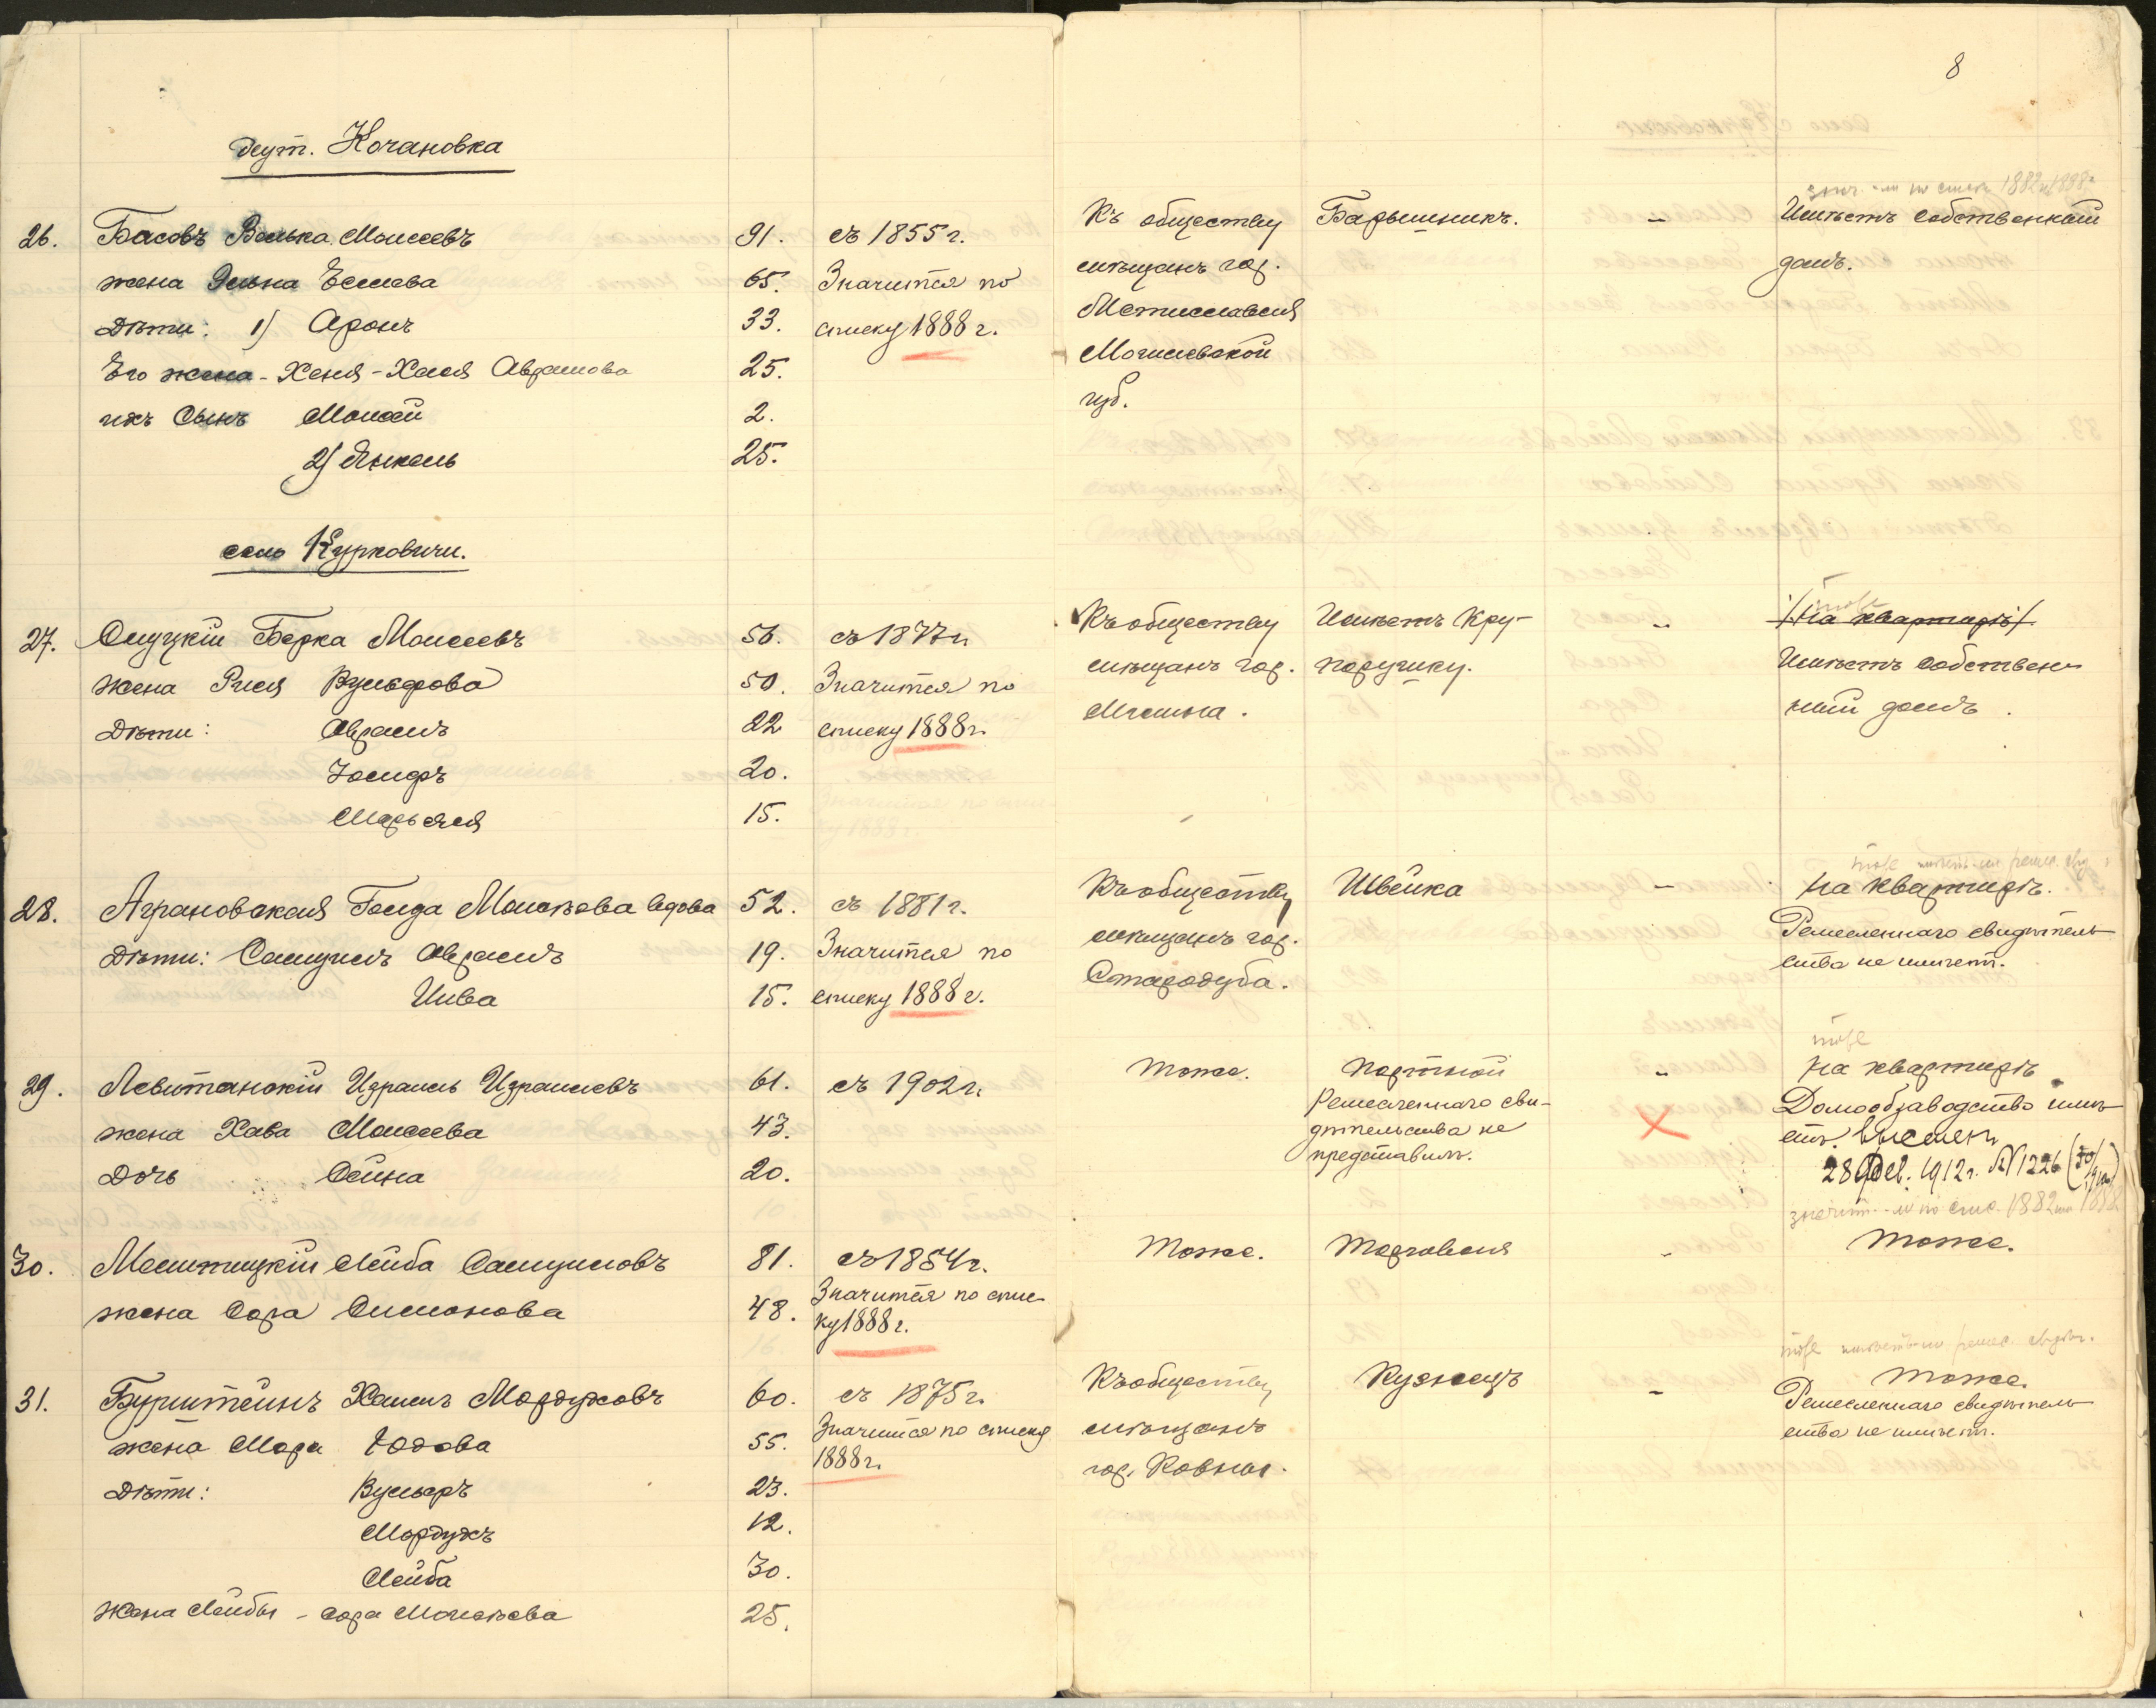 8
хут. Кочановка
26. Басовъ Велька Моисеевъ 91. съ 1855 г. Къ обществу Барышникъ. - Имѣетъ собственный
жена Эльна Еселева 65. Значится по мѣщанъ гор. домъ.
Дѣти: 1) Аронъ 33. списку 1888 г. Мстиславля
Его жена - Хеня-Хася Абрамова 25. Могилевской
ихъ Сынъ Мовсей 2. губ.
2) Янкель 25.
село Курковичи.
27. Слуцкій Берка Моисеевъ 56. съ 1877 г. Къ обществу Имѣетъ Кру- - /На квартирѣ/.
жена Рися Вульфова 50. Значится по мѣщанъ гор. порушку. Имѣетъ собствен-
Дѣти: Абрамъ 22 списку 1888 г. Мглина. ный домъ.
Іосифъ 20.
Марьяся 15.
тоже имѣетъ-ли ремес. свид.
28. Аграновская Голда Моисѣева вдова 52. съ 1881 г. Къ обществу Швейка - На квартирѣ.
Дѣти: Самуилъ Абрамъ 19. Значится по мѣщанъ гор. Ремесленнаго свидѣтель-
Цива 15. списку 1888 г. Стародуба. ства не имѣетъ.
тоже
29. Левитанскій Израиль Израилевъ 61. съ 1902 г. Тоже. Портной - На квартирѣ
жена Хава Моисеева 43. Ремесленнаго сви- Домообзаводство имѣ-
Дочь Сейна 20. дѣтельства не етъ. Выселенъ
представилъ. 28 Фев. 1912 г. № 1226
30. Меитицкій Лейба Самуиловъ 81. съ 1854 г. Тоже. Торговля - Тоже.
жена Сора Симонова 48. Значится по спис-
ку 1888 г.
тоже имѣетъ-ли ремес. свидѣт.
31. Бурштейнъ Хаимъ Мордуховъ 60. съ 1875 г. Къ обществу Кузнецъ - Тоже.
жена Мера Юдова 55. Значится по списку мѣщанъ Ремесленнаго свидѣтель-
1888 г. гор. Ковны. ства не имѣетъ.
Дѣти: Вульфъ 23.
Мордухъ 12.
Лейба 30.
Жена Лейбы - Сора Моисѣева 25.